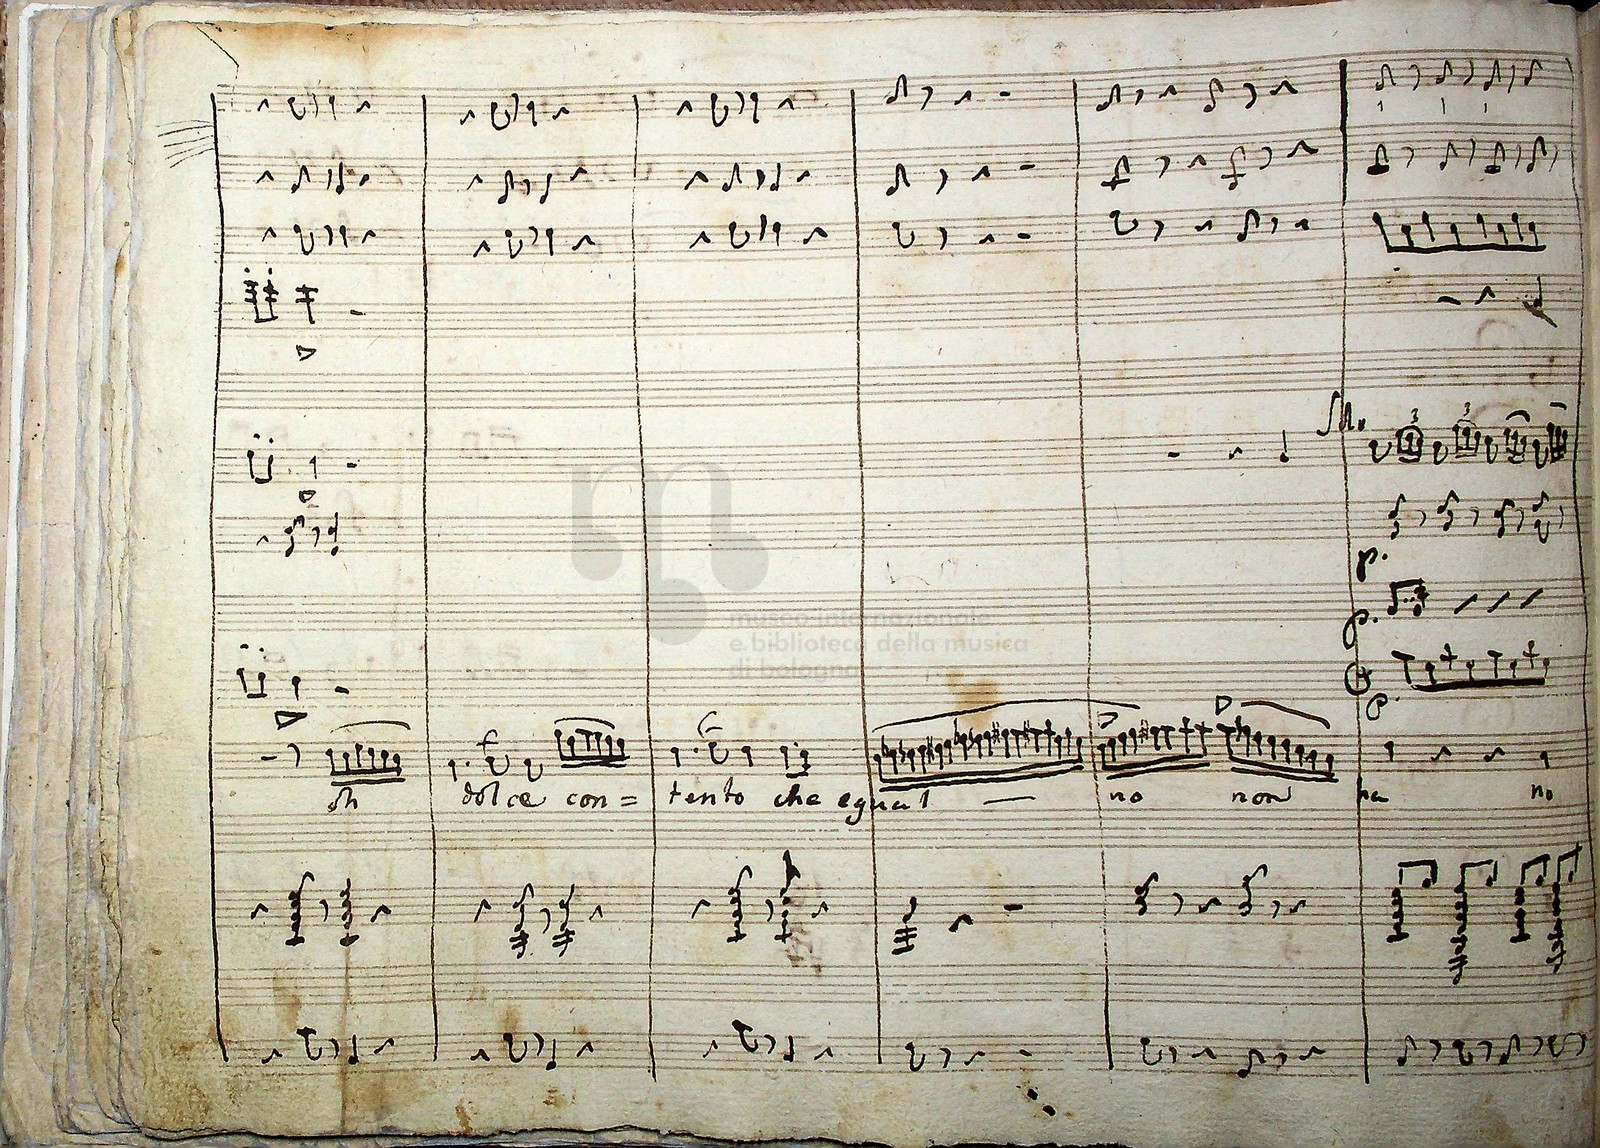 3 3
p.
p.
museo internazionale
e biblioteca della musica
di bologna
p
oh dolce con= tento che egual — no non ha no